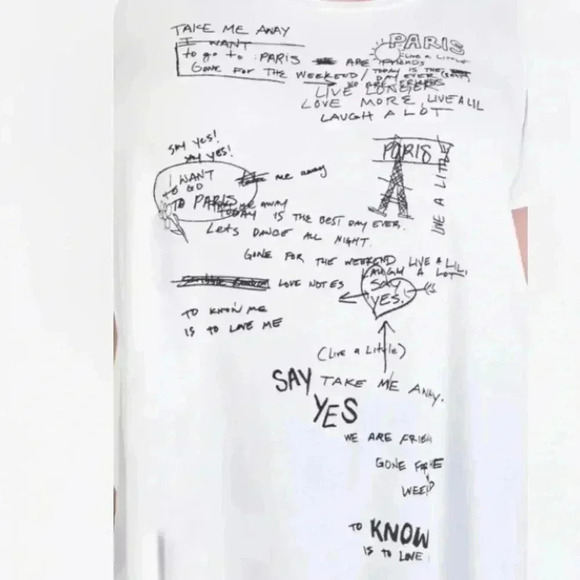 TAKE ME AWAY
I WANT
to go to PARIS
GONE FOR THE WEEKEND
PARIS
(LIVE A LITTLE
ARE FRIENDS
TODAY IS THE
DAY EVER
LIVE LONGER
LOVE MORE LIVE A LIL
LAUGH A LOT
SAY YES!
SAY YES!
I WANT
TO GO
TO PARIS
me away
ME AWAY
PARIS
LIVE A LITTLE
TODAY IS THE BEST DAY EVER.
Lets DANCE ALL NIGHT.
GONE FOR THE WEEKEND LIVE A LIL
LAUGH A LOT.
SAY
YES!
LOVE NOTES
TO KNOW ME
IS TO LOVE ME
(Live a Little)
SAY TAKE ME AWAY.
YES
WE ARE FRIEN
GONE FOR
WEE
TO KNOW
IS TO LOVE